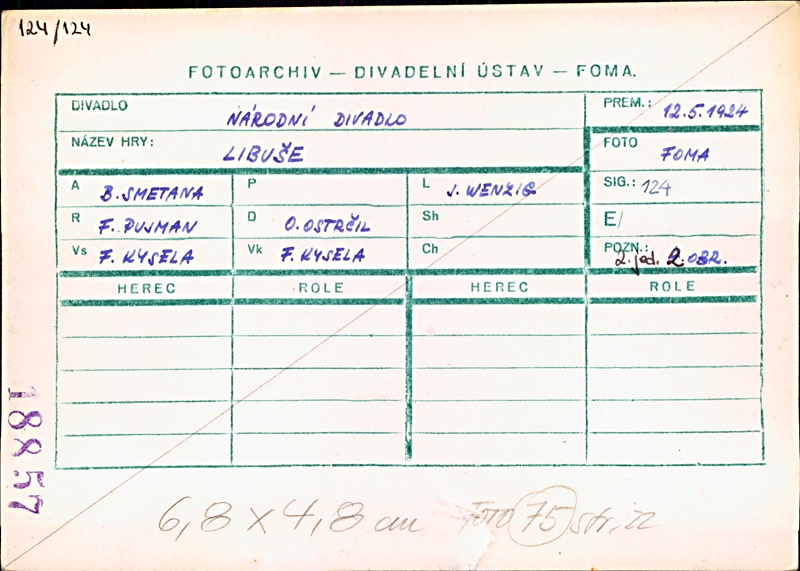 124/124
FOTOARCHIV — DIVADELNÍ ÚSTAV — FOMA.
DIVADLO NÁRODNÍ DIVADLO PREM.: 12.5.1924
NÁZEV HRY: LIBUŠE FOTO FOMA
A B. SMETANA P L J. WENZIG SIG.: 124
R F. PUJMAN D O. OSTRČIL Sh E/
Vs F. KYSELA Vk F. KYSELA Ch POZN.: 2. jed. 2. obr.
HEREC ROLE HEREC ROLE
18857
6,8 x 4,8 cm FOTO 75 str. 22